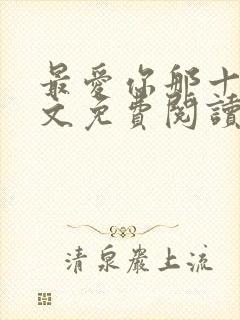 最愛你那十
文免費閱讀
清泉巖上流